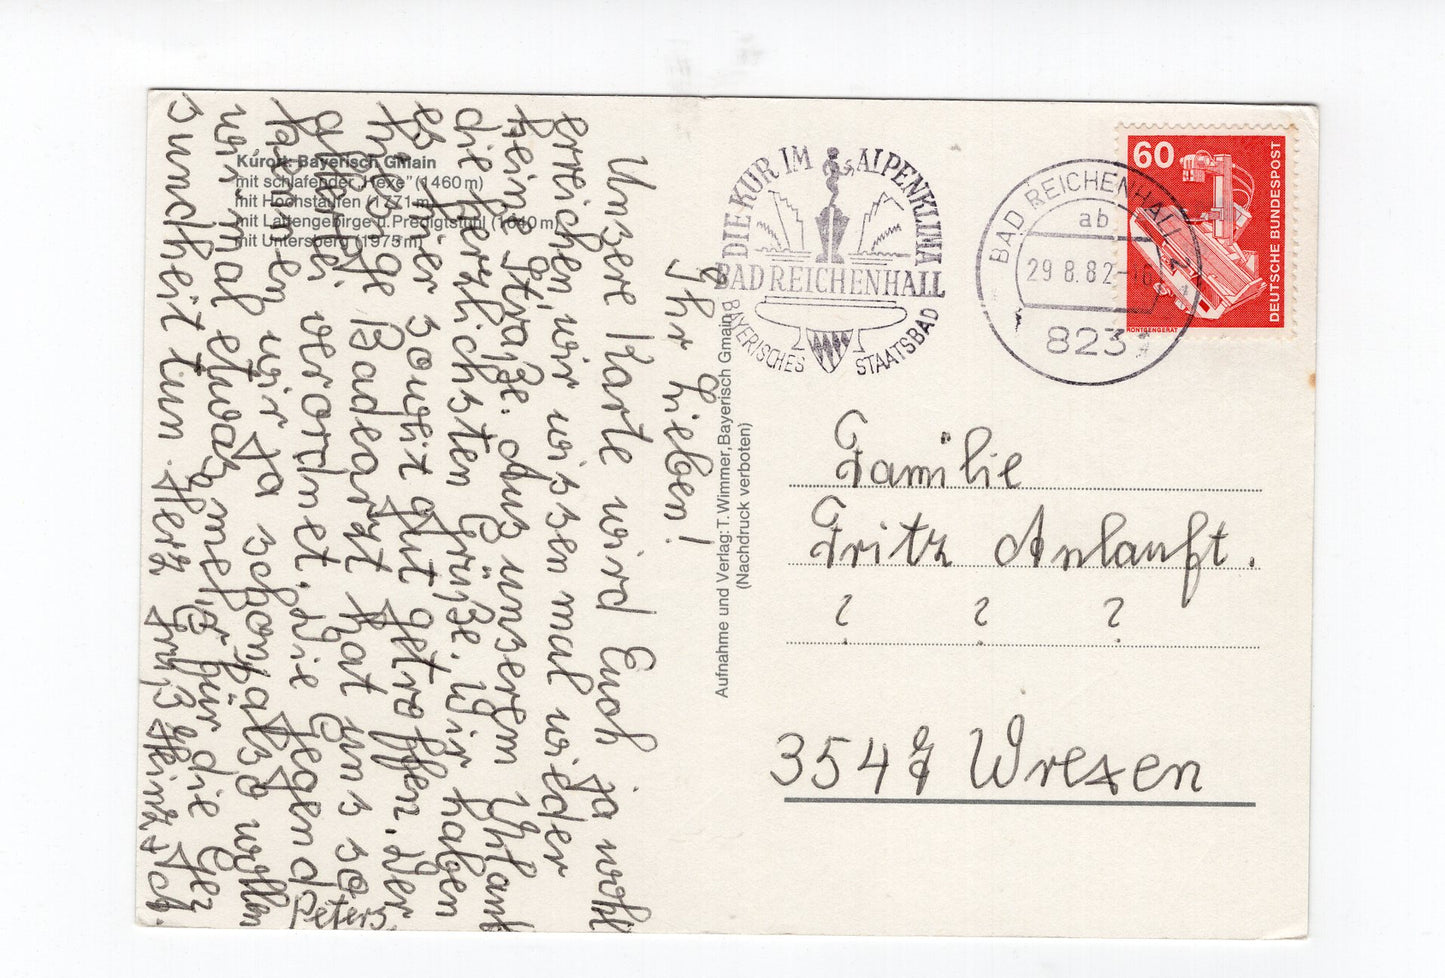 Kurort: Bayerisch Gmain
mit schlafender „Hexe" (1460 m)
mit Hochstaufen (1771 m)
mit Lattengebirge u. Predigtstuhl (1640 m)
mit Untersberg (1975 m)
Ihr Lieben!
Unsere Karte wird Euch ja wohl
erreichen, wir wissen mal wieder
keine Straße. Aus unserem Uhlaub
die herzlichsten Grüße. Wir haben
es hier soweit gut getroffen. Der
hiesige Badearzt hat uns so
allerlei verordnet. Die Gegend
kennen wir ja schon, also wollen
wir mal etwas mehr für die Gez
sundheit tun. Herz Gruß Heinz + Ich.
Peters.
Aufnahme und Verlag: T. Wimmer, Bayerisch Gmain
(Nachdruck verboten)
DIE KUR IM ALPENKLIMA
BAD REICHENHALL
BAYERISCHES STAATSBAD
BAD REICHENHALL
ab
29.8.82
823
60
DEUTSCHE BUNDESPOST
RÖNTGENGERÄT
Familie
Fritz Anlauft.
? ? ?
3547 Wrexen